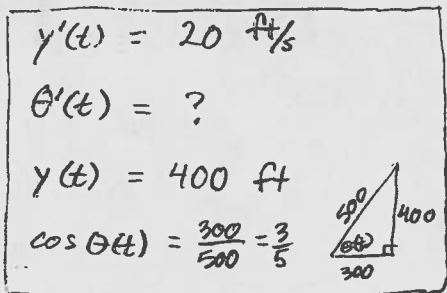 y'(t) = 20 ft/s
θ'(t) = ?
y(t) = 400 ft
cos θ(t) = 300/500 = 3/5
500
400
θ(t)
300